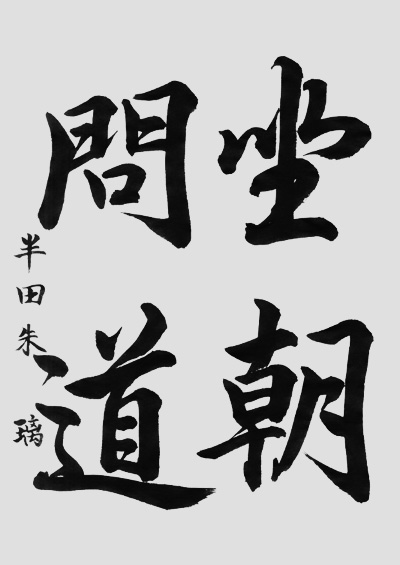 坐朝
問道
半田朱璃